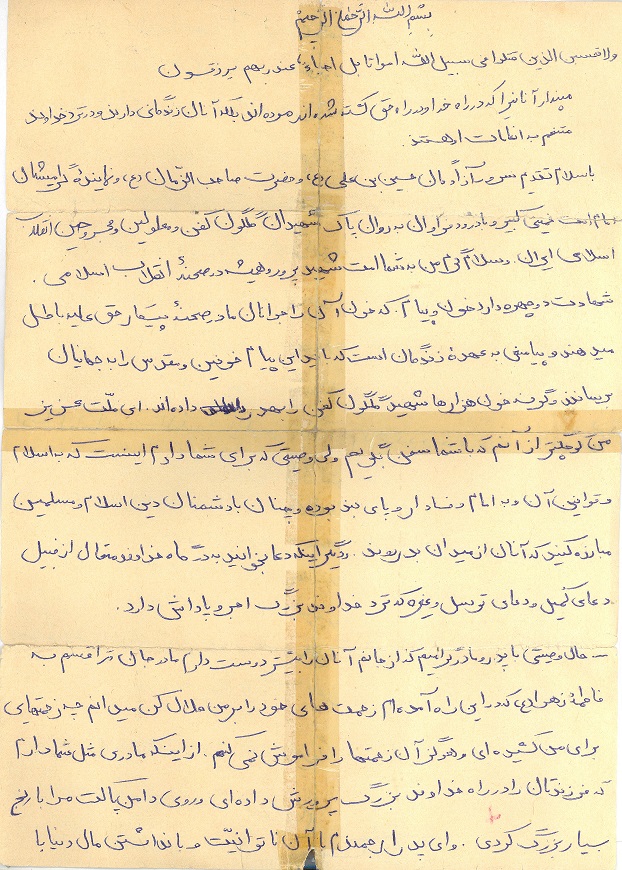 بسم الله الرحمن الرحیم
ولا تحسبن الذین قتلوا فی سبیل الله امواتا بل احیاء عند ربهم یرزقون
مپندار آنانیرا که در راه خدا و در راه حق کشته شده‌اند مرده‌اند بلکه آنان زندگانی دارند و در نزد خداوند
متنعم به انعامات او هستند
باسلام تقدیم سرور آزادگان حسین بن علی (ع) و حضرت صاحب الزمان (ع) و نماینده گرامیشان
امام امت خمینی کبیر و با درود فراوان به روان پاک شهیدان گلگون کفن و معلولین و مجروحین انقلاب
اسلامی ایران. وسلام گرم من به شما امت شهید پرور و همیشه در صحنهٔ انقلاب اسلامی.
شهادت دو چهره دارد خون و پیام. که خون آن را جوانان ما در صحنهٔ پیکار حق علیه باطل
میدهند و پیامش به عهدهٔ زندگان است که باید این پیام خونین و مقدس را به جهانیان
برسانند وگرنه خون هزارها شهید گلگون کفن را هدر داده‌اند. ای ملت عزیز
من کوچکتر از آنم که با شما سخن بگویم ولی وصیتی که برای شما دارم اینست که به اسلام
و قوانین آن و به امام وفادار و پای بند بوده و چنان با دشمنان دین اسلام و مسلمین
مبارزه کنید که آنان از میدان بدر روند. و دیگر اینکه دعا بخوانید به درگاه خداوند متعال از قبیل
دعای کمیل و دعای توسل و غیره که نزد خداوند بزرگ اجر و پاداش دارد.
- حال وصیتی با پدر و مادر گرامیم که از جانم آنان را بیشتر دوست دارم مادر جان ترا قسم به
فاطمهٔ زهرا (ع) که در این راه آمده‌ام زحمت های خود را بر من حلال کن میدانم چه زحمتهای
برای من کشیده‌ای و هرگز آن زحمتها را فراموش نمی‌کنم. از اینکه مادری مثل شما دارم
که فرزندتان را در راه خداوند بزرگ پرورش داده‌ای و روی دامن پاکت مرا با رنج
بسیار بزرگ کردی. و ای پدر ارجمندم با آن ناتوانیت و با نداشتن مال دنیا با